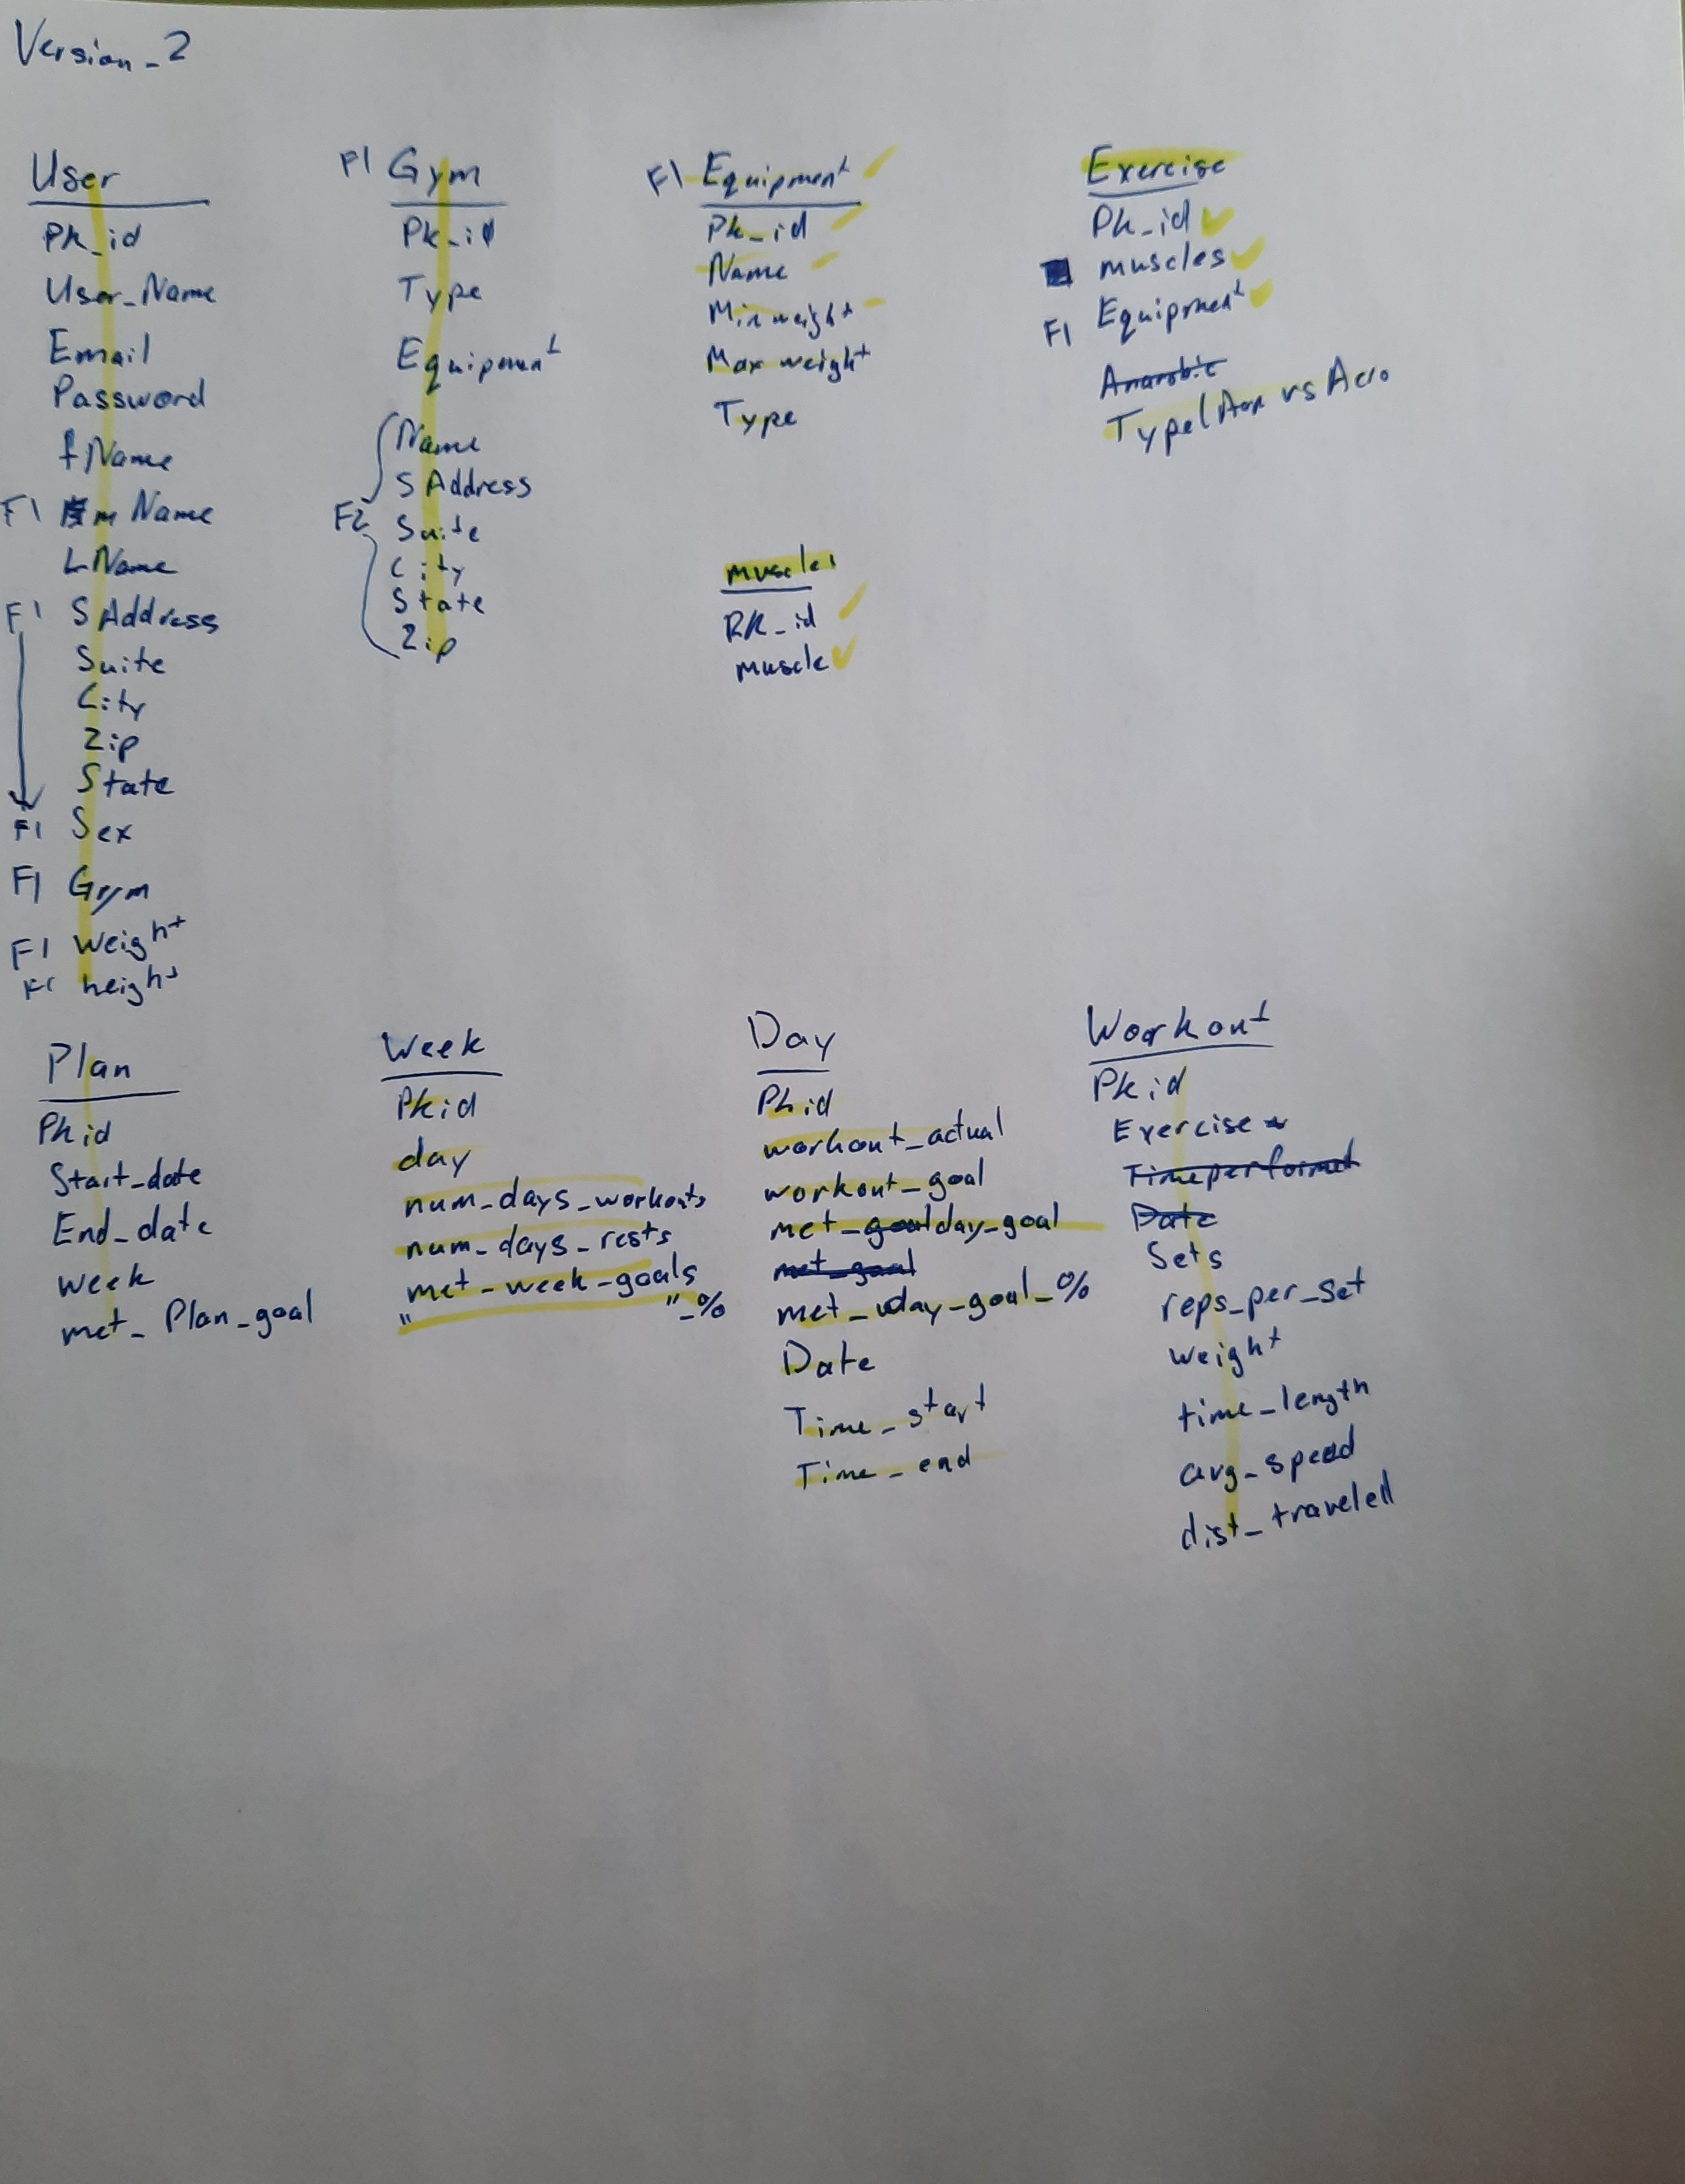 Version_2
User
Pk_id
User_Name
Email
Password
fName
F1 m Name
LName
F1 S Address
Suite
City
Zip
State
F1 Sex
F1 Gym
F1 Weight
F1 height
F1 Gym
Pk_id
Type
Equipment
Name
S Address
F2 Suite
City
State
Zip
F1 Equipment
Pk_id
Name
Min weight
Max weight
Type
muscles
Pk_id
muscle
Exercise
Pk_id
muscles
F1 Equipment
Anarobic
Type( vs Aero
Plan
Pk id
Start_date
End_date
Week
met_Plan_goal
Week
Pk id
day
num_days_workouts
num_days_rests
met_week_goals
" "_%
Day
Pk id
workout_actual
workout_goal
met_goal day_goal
met_goal
met_day_goal_%
Date
Time_start
Time_end
Workout
Pk id
Exercise
Time performed
Date
Sets
reps_per_set
weight
time_length
avg_speed
dist_traveled